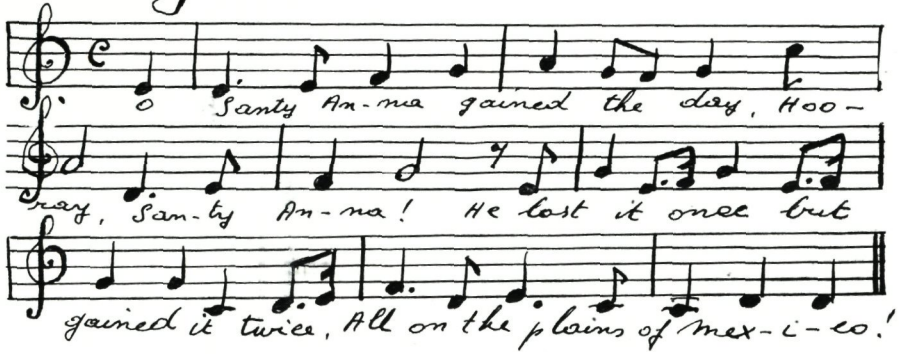 O Santy An-na gained the day, Hoo-
ray, San-ty An-na! He lost it once but
gained it twice, All on the plains of Mex-i-co!